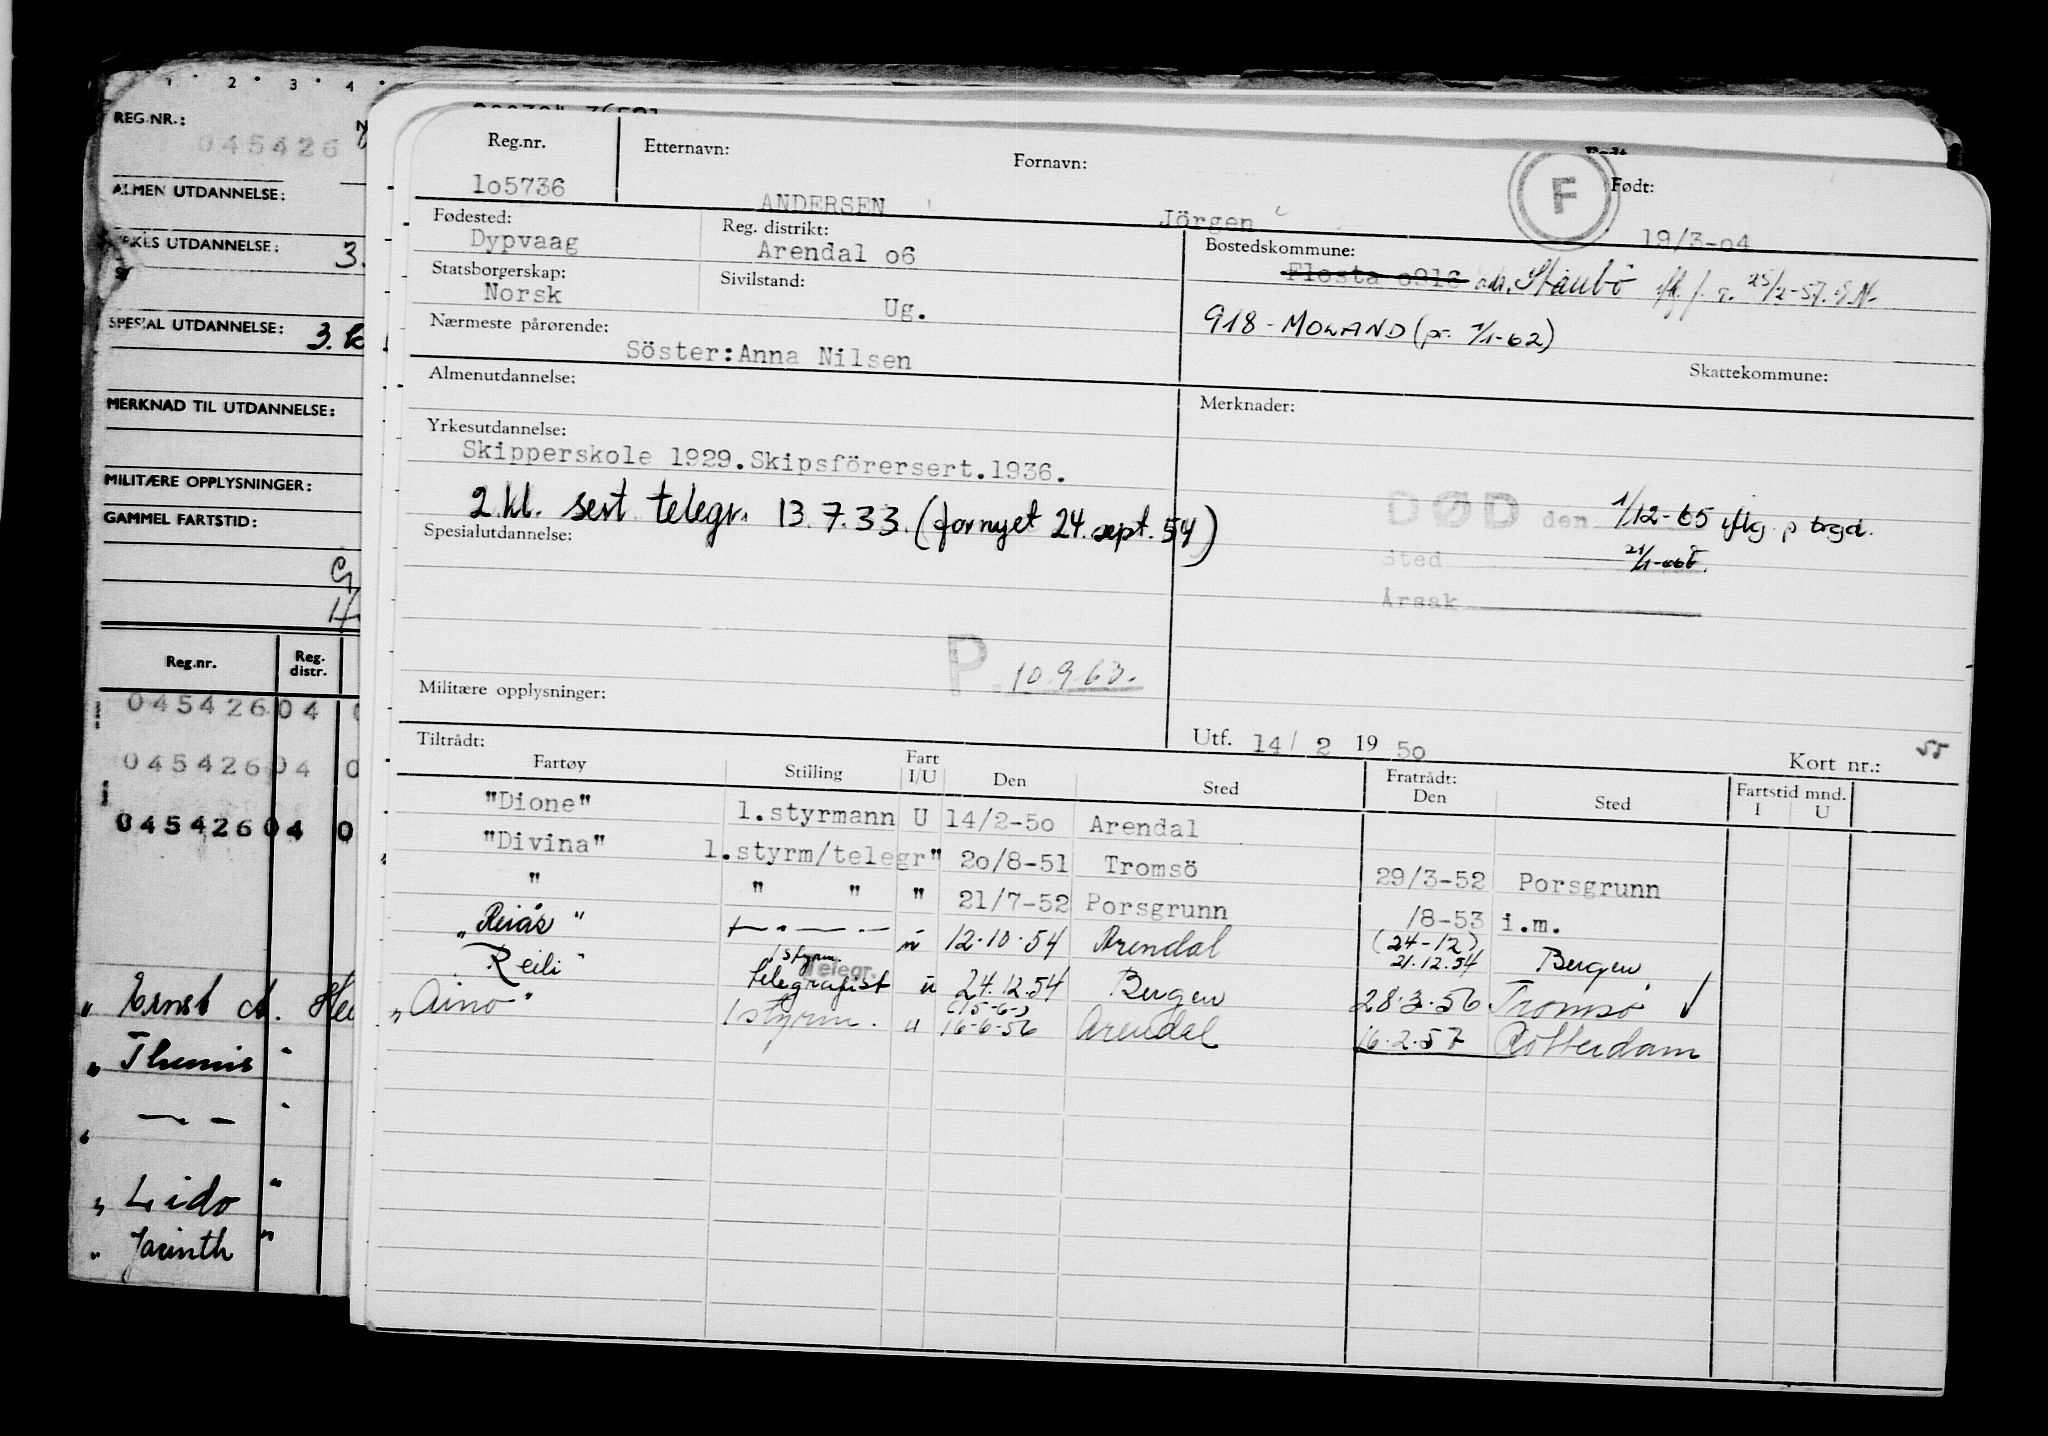 1 2 3 4
REG.NR.:
045426
ALMEN UTDANNELSE:
YRKES UTDANNELSE: 3.
SPESIAL UTDANNELSE: 3.
MERKNAD TIL UTDANNELSE:
MILITÆRE OPPLYSNINGER:
GAMMEL FARTSTID:
Reg.nr. Reg. distr.
045426 04 0
045426 04 0
045426 04 0
„ Ernst A.
„ Themis "
„ — — "
„ Lido "
„ Jacinth "
Reg.nr. Etternavn: Fornavn: F Født:
1o5736 ANDERSEN Jörgen 19/3-o4
Fødested: Reg. distrikt: Bostedskommune:
Dypvaag Arendal o6 Flosta o916 Staubö 25/2-57.
Statsborgerskap: Sivilstand:
Norsk Ug.
918 - MOLAND (pr. 1/1-62)
Nærmeste pårørende: Skattekommune:
Söster:Anna Nilsen
Almenutdannelse: Merknader:
Yrkesutdannelse:
Skipperskole 1929.Skipsförersert.1936.
2.kl. sert telegr. 13.7.33. (fornyet 24.sept.54)
DØD den 1/12-65 iflg. p
Sted 21/1-66
Årsak
Spesialutdannelse:
P. 10.9.63.
Militære opplysninger:
Utf. 14/ 2 19 5o Kort nr.: 55
Tiltrådt: Fratrådt: Fartstid mnd.
Fartøy Stilling Fart I/U Den Sted Den Sted I U
"Dione" 1.styrmann U 14/2-5o Arendal
"Divina" 1.styrm/telegr" 2o/8-51 Tromsö 29/3-52 Porsgrunn
" " " " 21/7-52 Porsgrunn /8-53 i.m.
„Reiås" — " — u 12.10.54 Arendal (24-12) 21.12.54 Bergen
Reili" 1 styrm. Telegr. telegrafist u 24.12.54 Bergen 28.3.56 Tromsø
„Aino" 1 styrm. u (15-6-) 16-6-56 Arendal 16.2.57 Rotterdam